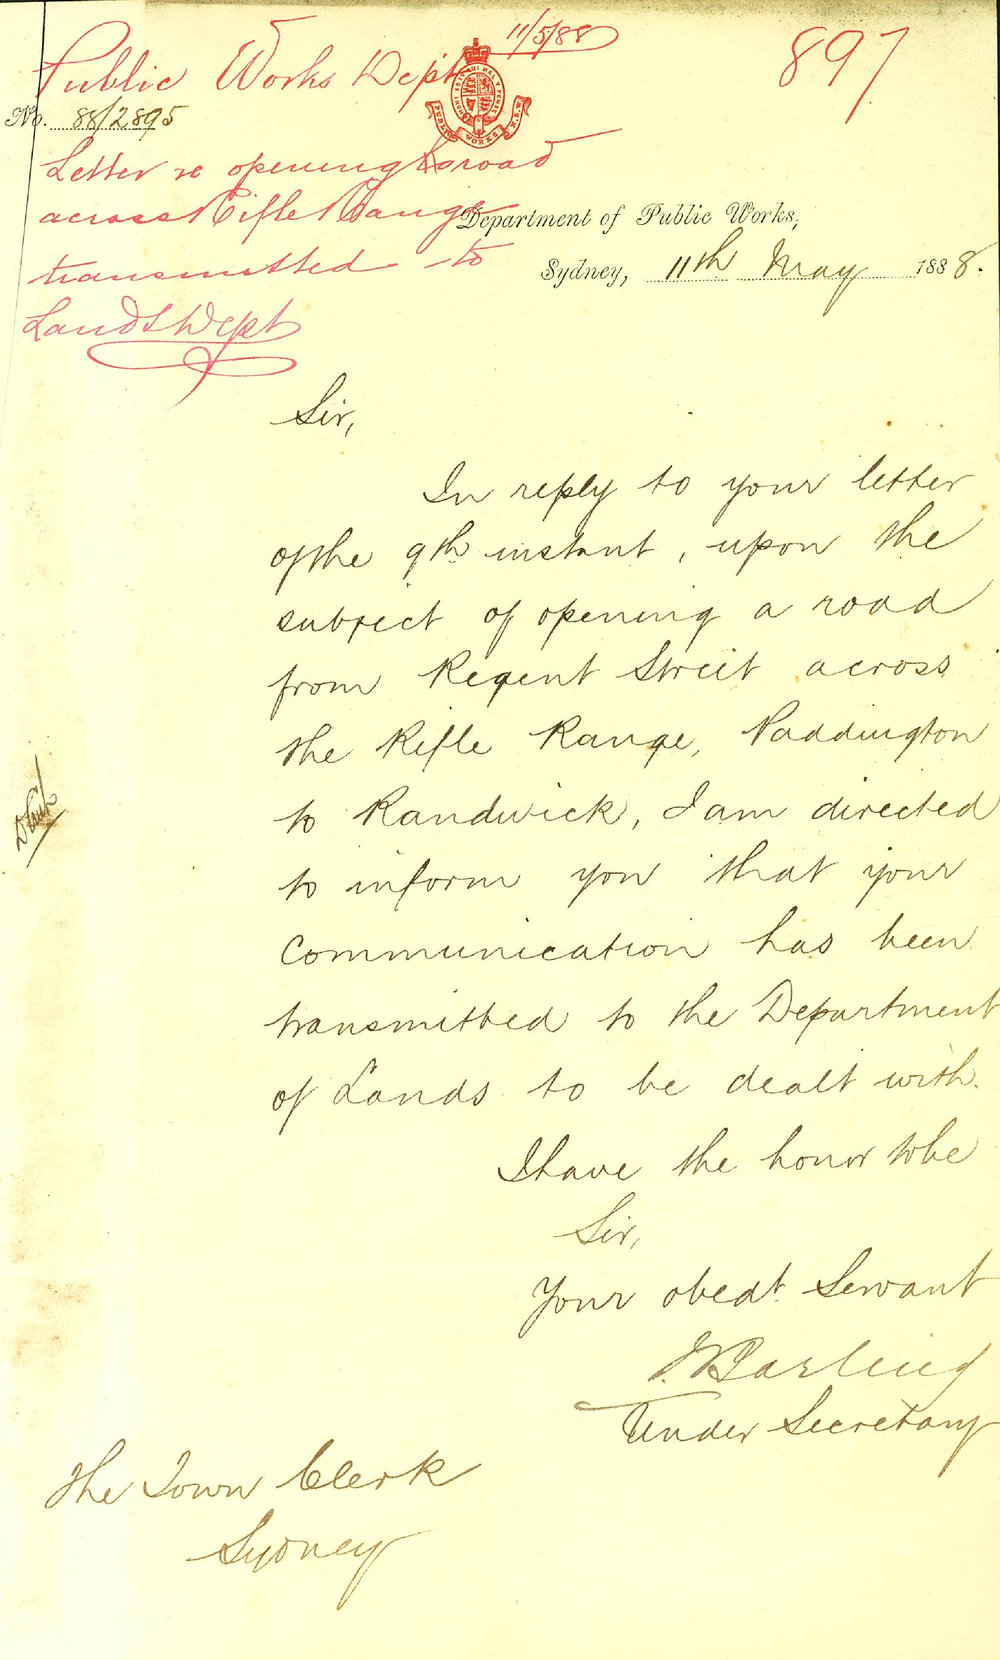 11/5/88
897
Public Works Dept
No. 88/2895
Letter re opening road
across Rifle Range
transmitted to
Lands Dept
PUBLIC WORKS N.S.W.
Department of Public Works,
Sydney, 11th May 1888.
Sir,
In reply to your letter
of the 9th instant, upon the
subject of opening a road
from Regent Street across
the Rifle Range, Paddington
to Randwick, I am directed
to inform you that your
Communication has been
transmitted to the Department
of Lands to be dealt with.
I have the honor to be
Sir,
Your obedt. Servant
J Barling
Under Secretary
The Town Clerk
Sydney